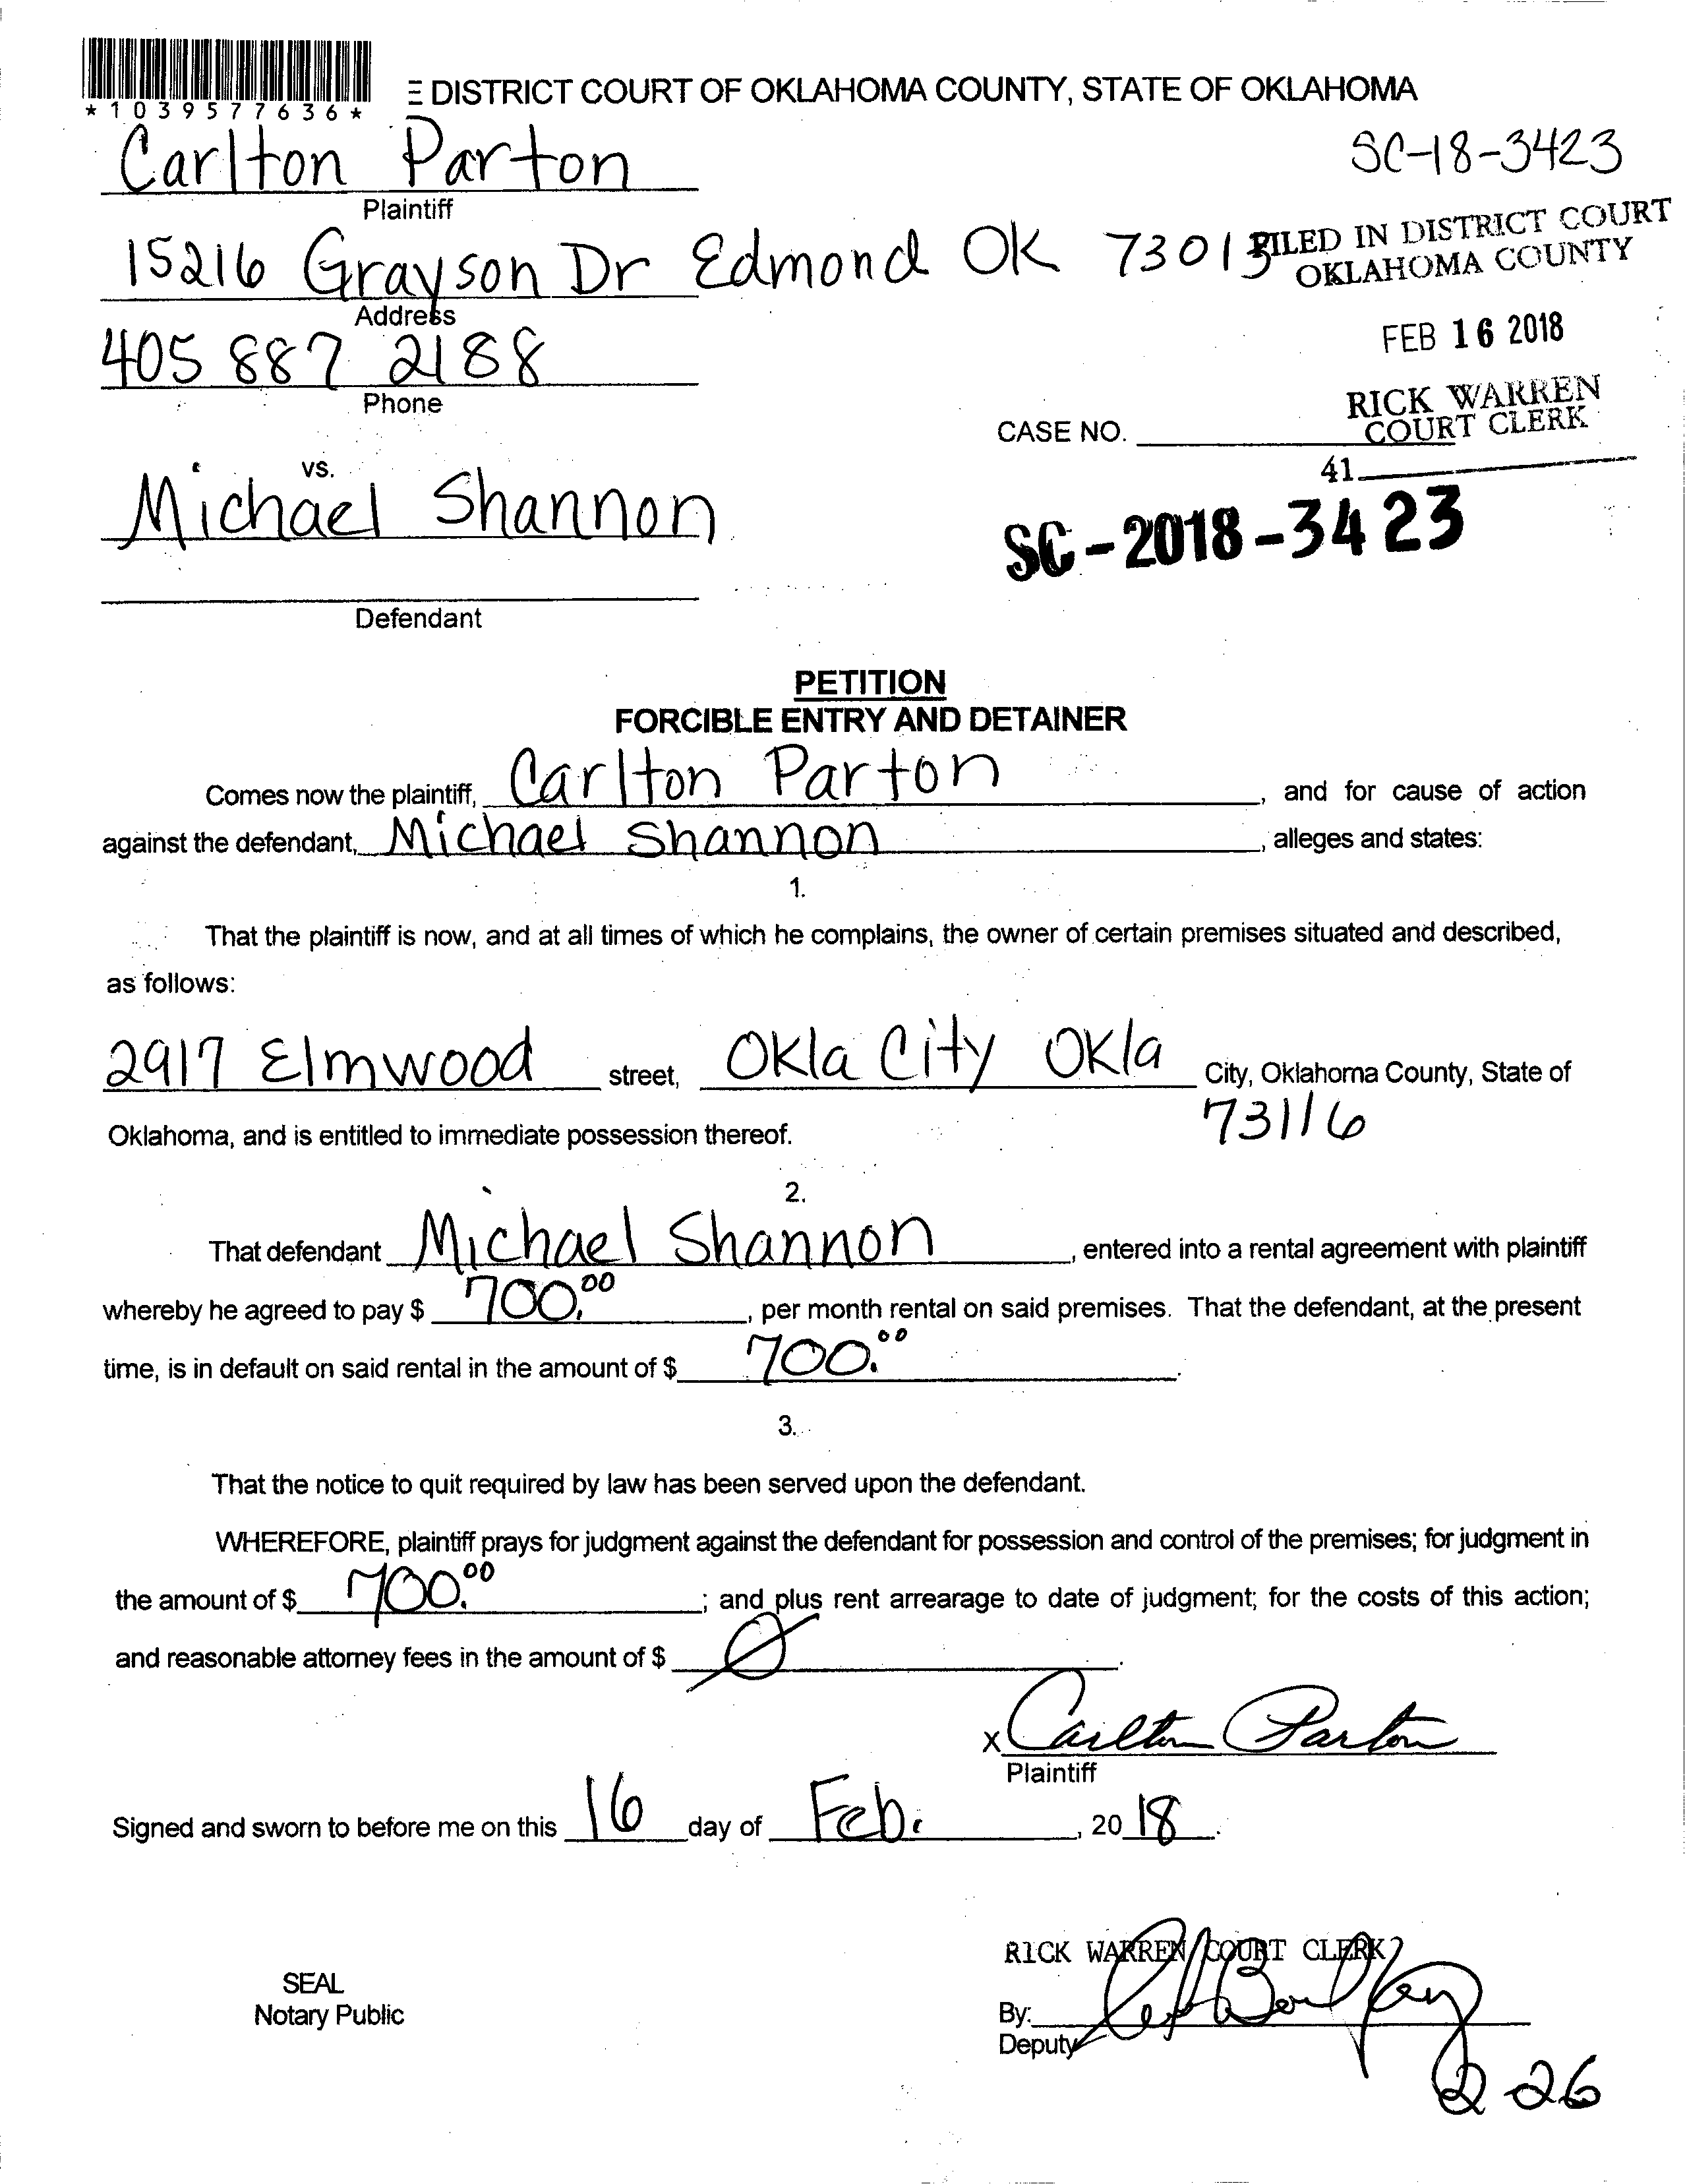 *1039577636*
E DISTRICT COURT OF OKLAHOMA COUNTY, STATE OF OKLAHOMA
Carlton Parton
SC-18-3423
Plaintiff
15216 Grayson Dr Edmond OK 73013
FILED IN DISTRICT COURT
OKLAHOMA COUNTY
Address
405 887 2188
FEB 16 2018
Phone
RICK WARREN
COURT CLERK
CASE NO.
41
vs.
Michael Shannon
SC-2018-3423
Defendant
PETITION
FORCIBLE ENTRY AND DETAINER
Comes now the plaintiff, Carlton Parton, and for cause of action
against the defendant, Michael Shannon, alleges and states:
1.
That the plaintiff is now, and at all times of which he complains, the owner of certain premises situated and described,
as follows:
2917 Elmwood street, Okla City Okla City, Oklahoma County, State of
73116
Oklahoma, and is entitled to immediate possession thereof.
2.
That defendant Michael Shannon, entered into a rental agreement with plaintiff
whereby he agreed to pay $ 700.00, per month rental on said premises. That the defendant, at the present
time, is in default on said rental in the amount of $ 700.00.
3.
That the notice to quit required by law has been served upon the defendant.
WHEREFORE, plaintiff prays for judgment against the defendant for possession and control of the premises; for judgment in
the amount of $ 700.00; and plus rent arrearage to date of judgment; for the costs of this action;
and reasonable attorney fees in the amount of $ Ø.
x Carlton Parton
Plaintiff
Signed and sworn to before me on this 16 day of Feb., 2018.
RICK WARREN COURT CLERK
SEAL
Notary Public
By:
Deputy
2-26